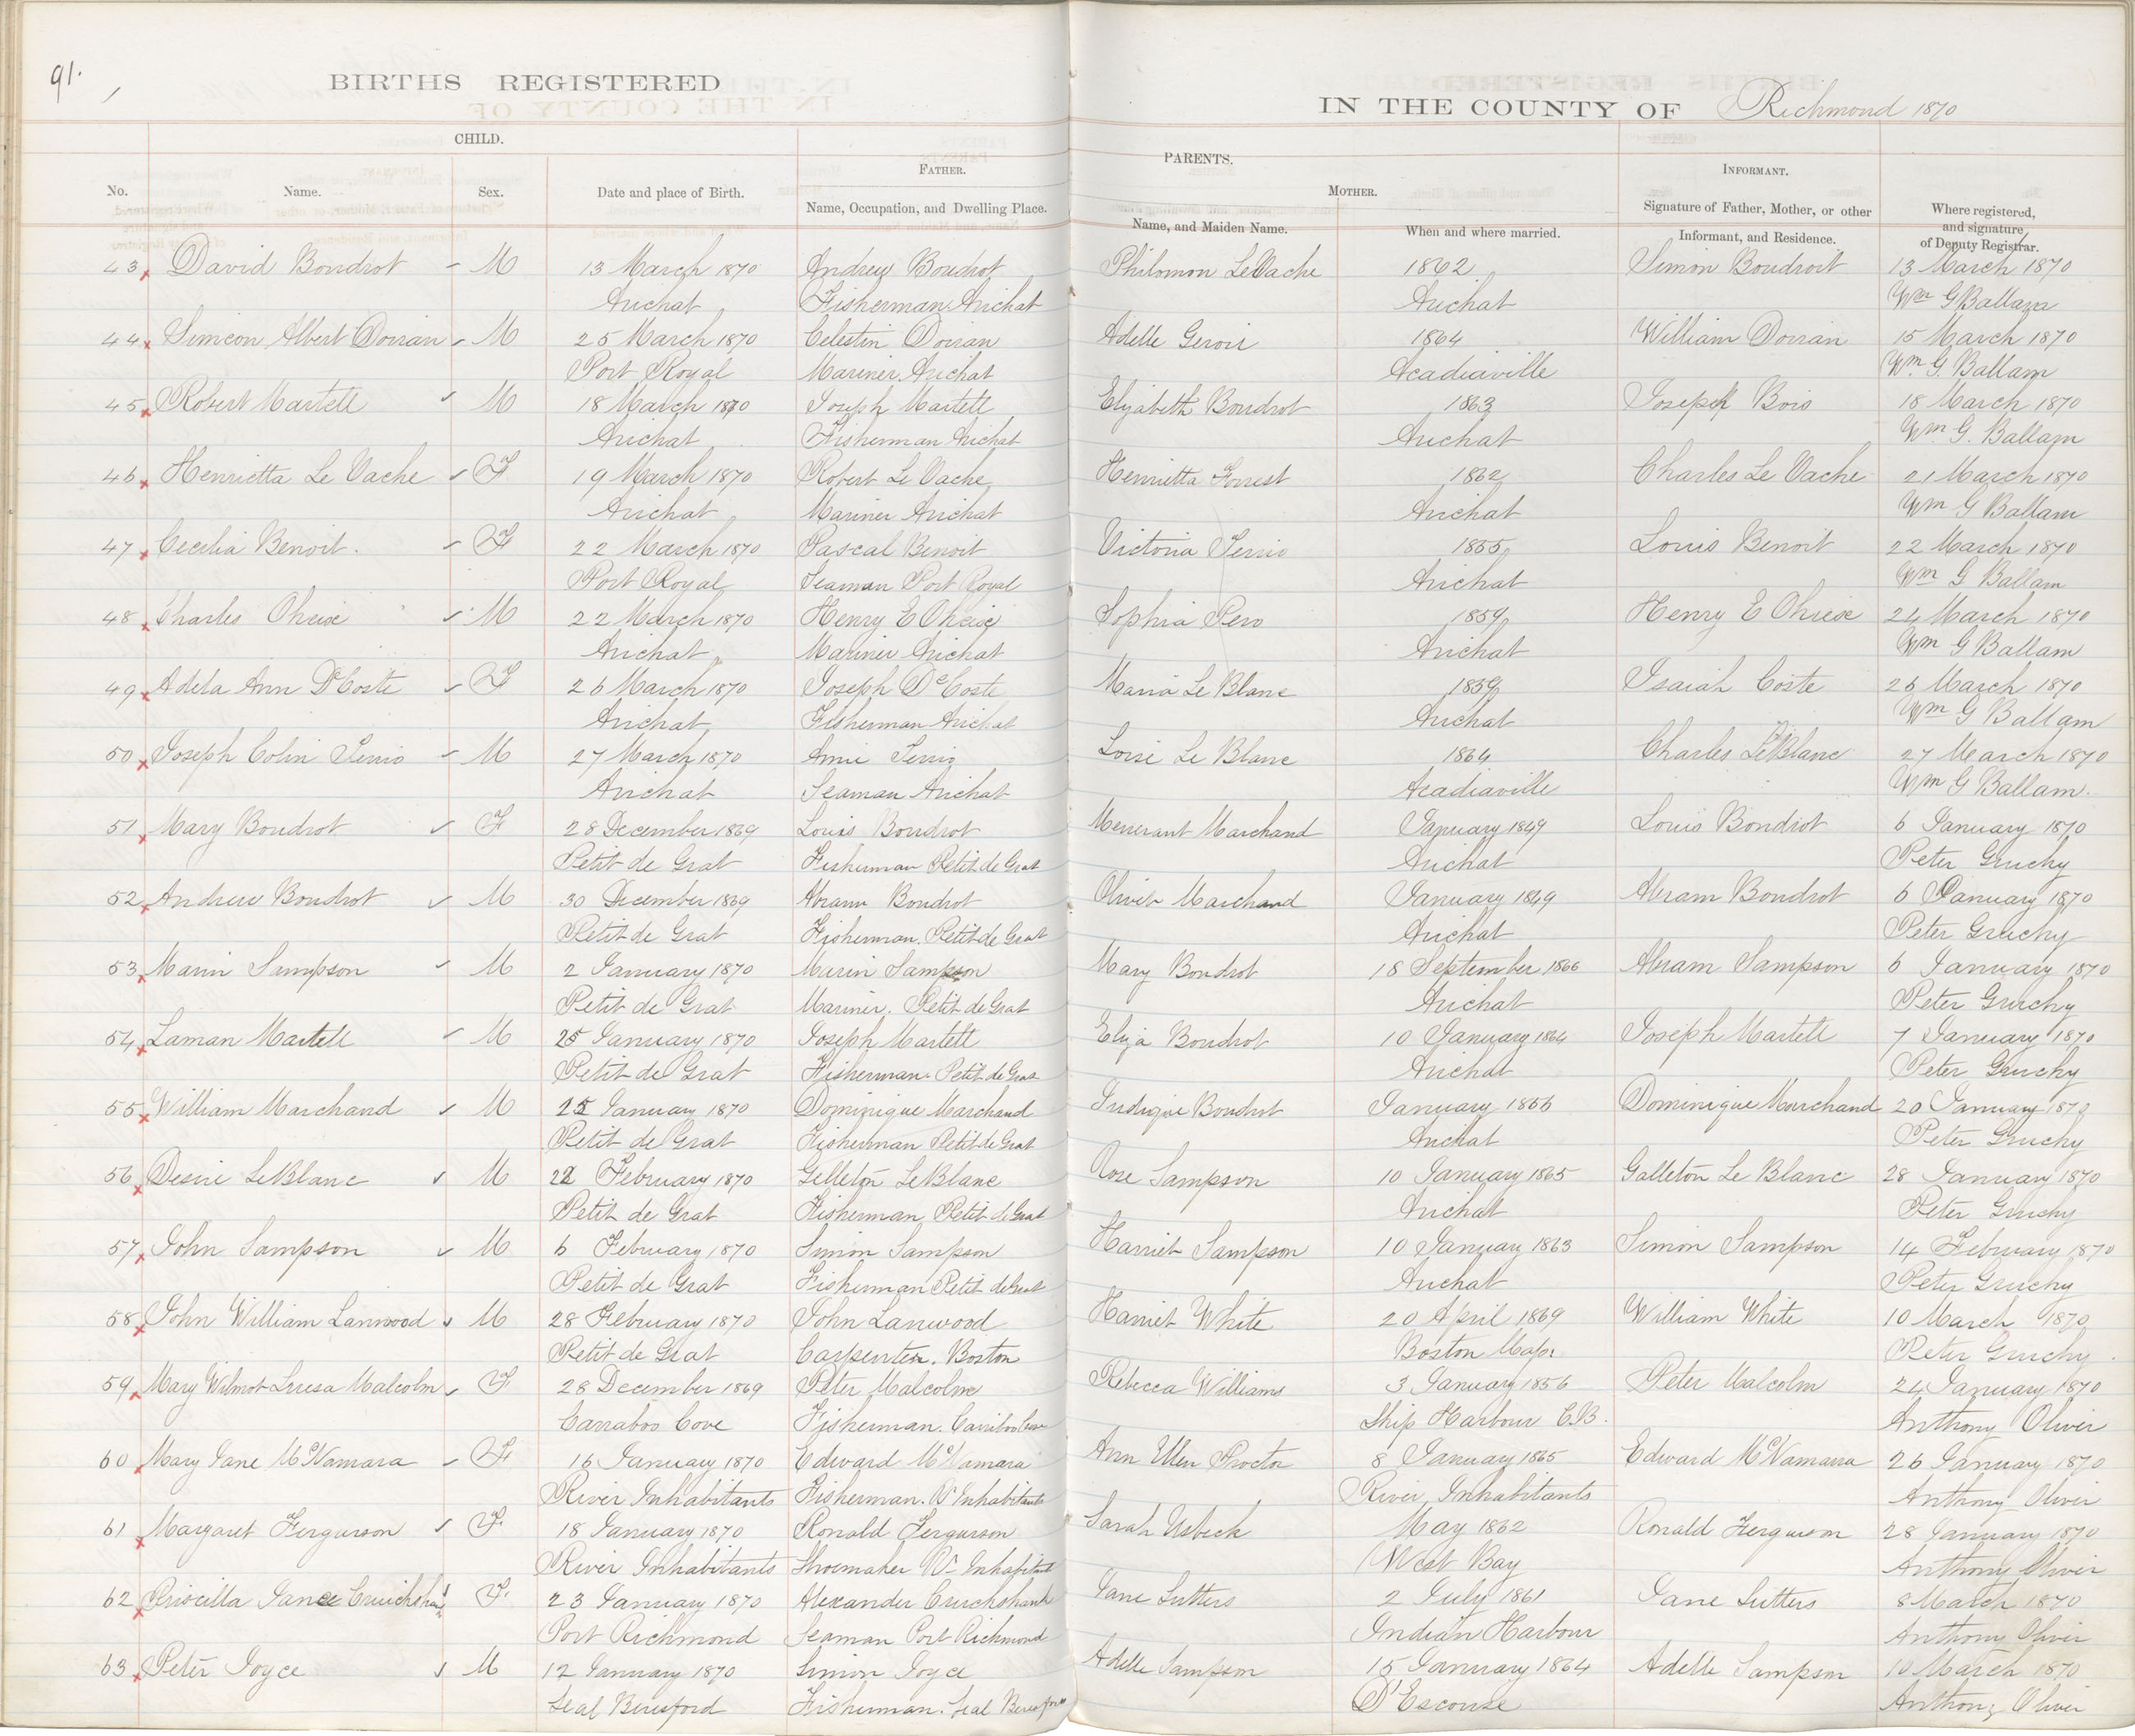 91.
BIRTHS REGISTERED
IN THE COUNTY OF Richmond 1870
CHILD.
PARENTS.
FATHER.
MOTHER.
INFORMANT.
No. Name. Sex. Date and place of Birth. Name, Occupation, and Dwelling Place. Name, and Maiden Name. When and where married. Signature of Father, Mother, or other Informant, and Residence. Where registered, and signature of Deputy Registrar.
43 David Boudrot M 13 March 1870 Andrew Boudrot Philomon LeVache 1862 Simon Boudroit 13 March 1870
Arichat Fisherman Arichat Arichat Wm G Ballam
44 Simeon Albert Doiran M 25 March 1870 Celestin Doiran Adelle Geroir 1864 William Doiran 15 March 1870
Port Royal Mariner Arichat Acadiaville Wm. G. Ballam
45 Robert Martell M 18 March 1870 Joseph Martell Elizabeth Boudrot 1863 Joseph Bois 18 March 1870
Arichat Fisherman Arichat Arichat Wm G. Ballam
46 Henrietta Le Vache F 19 March 1870 Robert Le Vache Henrietta Forrest 1862 Charles Le Vache 21 March 1870
Arichat Mariner Arichat Arichat Wm G Ballam
47 Cecilia Benoit. F 22 March 1870 Pascal Benoit Victoria Terrio 1855 Louis Benoit 22 March 1870
Port Royal Seaman Port Royal Arichat Wm G Ballam
48 Charles M 22 March 1870 Henry E Sophia Pero 1859 Henry E 24 March 1870
Arichat Mariner Arichat Arichat Wm G Ballam
49 Adela Ann DeCoste F 26 March 1870 Joseph DeCoste Maria Le Blanc 1859 Isaiah Coste 26 March 1870
Arichat Fisherman Arichat Arichat Wm G Ballam
50 Joseph Colin Terrio M 27 March 1870 Amie Terrio Loise Le Blanc 1864 Charles LeBlanc 27 March 1870
Arichat Seaman Arichat Acadiaville Wm G Ballam.
51 Mary Boudrot F 28 December 1869 Louis Boudrot Marchand January 1849 Louis Boudrot 6 January 1870
Petit de Grat Fisherman Petit de Grat Arichat Peter Gruchy
52 Andrew Boudrot M 30 December 1869 Abram Boudrot Oliveh Marchand January 1849 Abram Boudrot 6 January 1870
Petit de Grat Fisherman. Petit de Grat Arichat Peter Gruchy
53 Marin Sampson M 2 January 1870 Marin Sampson Mary Boudrot 18 September 1866 Abram Sampson 6 January 1870
Petit de Grat Mariner. Petit de Grat Arichat Peter Gruchy
54 Laman Martell M 25 January 1870 Joseph Martell Eliza Boudrot 10 January 1864 Joseph Martell 7 January 1870
Petit de Grat Fisherman. Petit de Grat Arichat Peter Gruchy
55 William Marchand M January 1870 Dominique Marchand Boudrot January 1856 Dominique Marchand 20 January 1870
Petit de Grat Fisherman Petit de Grat Arichat Peter Gruchy
56 Desire LeBlanc M February 1870 Gelleton LeBlanc Rose Sampson 10 January 1865 Galleton Le Blanc 28 January 1870
Petit de Grat Fisherman Petit de Grat Arichat Peter Gruchy
57 John Sampson M 6 February 1870 Simon Sampson Harriet Sampson 10 January 1863 Simon Sampson 14 February 1870
Petit de Grat Fisherman Petit de Grat Arichat Peter Gruchy
58 John William Lanwood M 28 February 1870 John Lanwood Harriet White 20 April 1869 William White 10 March 1870
Petit de Grat Carpenter. Boston Boston Mass Peter Gruchy
59 Mary Wilmot Luresa Malcolm F 28 December 1869 Peter Malcolm Rebecca Williams 3 January 1856 Peter Malcolm 24 January 1870
Carraboo Cove Fisherman. Carriboo Cove Ship Harbour C.B. Anthony Oliver
60 Mary Jane McNamara F 16 January 1870 Edward McNamara Ann Ellen Proctor 8 January 1865 Edward McNamara 26 January 1870
River Inhabitants Fisherman. Rr Inhabitants River Inhabitants Anthony Oliver
61 Margaret Fergurson F 18 January 1870 Ronald Fergurson Sarah Usbeck May 1862 Ronald Ferguson 28 January 1870
River Inhabitants Shoemaker Rr Inhabitant West Bay Anthony Oliver
62 Priscilla Jane Cruickshank F 23 January 1870 Alexander Cruckshank Jane Sutters 2 July 1861 Jane Sutters 8 March 1870
Port Richmond Seaman Port Richmond Indian Harbour Anthony Oliver
63 Peter Joyce M 12 January 1870 Simon Joyce Adelle Sampson 15 January 1864 Adelle Sampson 10 March 1870
Seal Beresford Fisherman. Seal Beresford D'Escouse Anthony Oliver